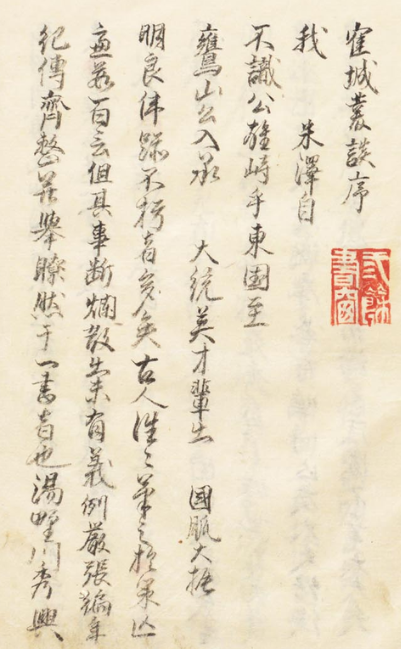 隺城叢談序
我 米澤自
不識公雄峙乎東國至
鷹山公入承 大統英才輩出 國脈大振
明良偉蹟不朽者多矣古人往々筆之於策
百云但其事斷爛散出未有義例嚴張編年
紀傳齊整並舉瞭然于一書者也湯野川秀興
餘書窗